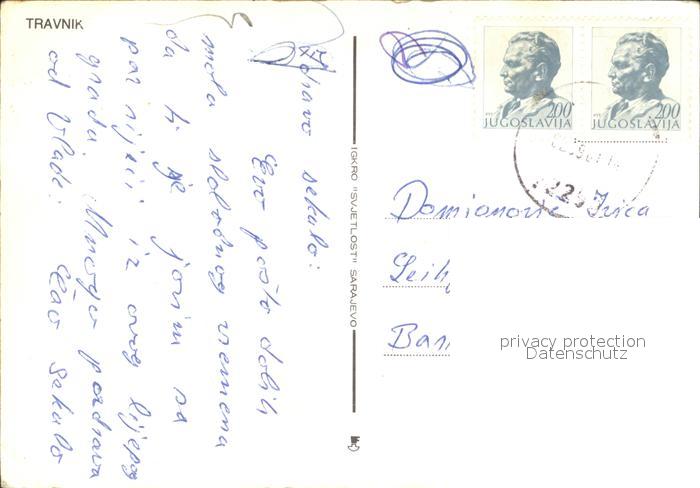 TRAVNIK
Zdravo sekulo!
Evo pošto dobih
malo slobodnog vremena
da ti se javim sa
par riječi iz ovog lijepog
grada. Mnogo pozdrava
od Vlade. Ćao sekulo
IGKRO "SVJETLOST" SARAJEVO
200
JUGOSLAVIJA
200
JUGOSLAVIJA
Ivica
privacy protection
Datenschutz